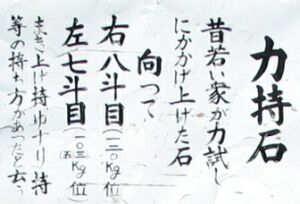 力持石
昔若い衆が力試し
にかかげ上げた石
向って
右八斗目(一二〇Kg位)
左七斗目(一〇五Kg位)
まき上げ持ゆすり持
等の持ち方があったと云う